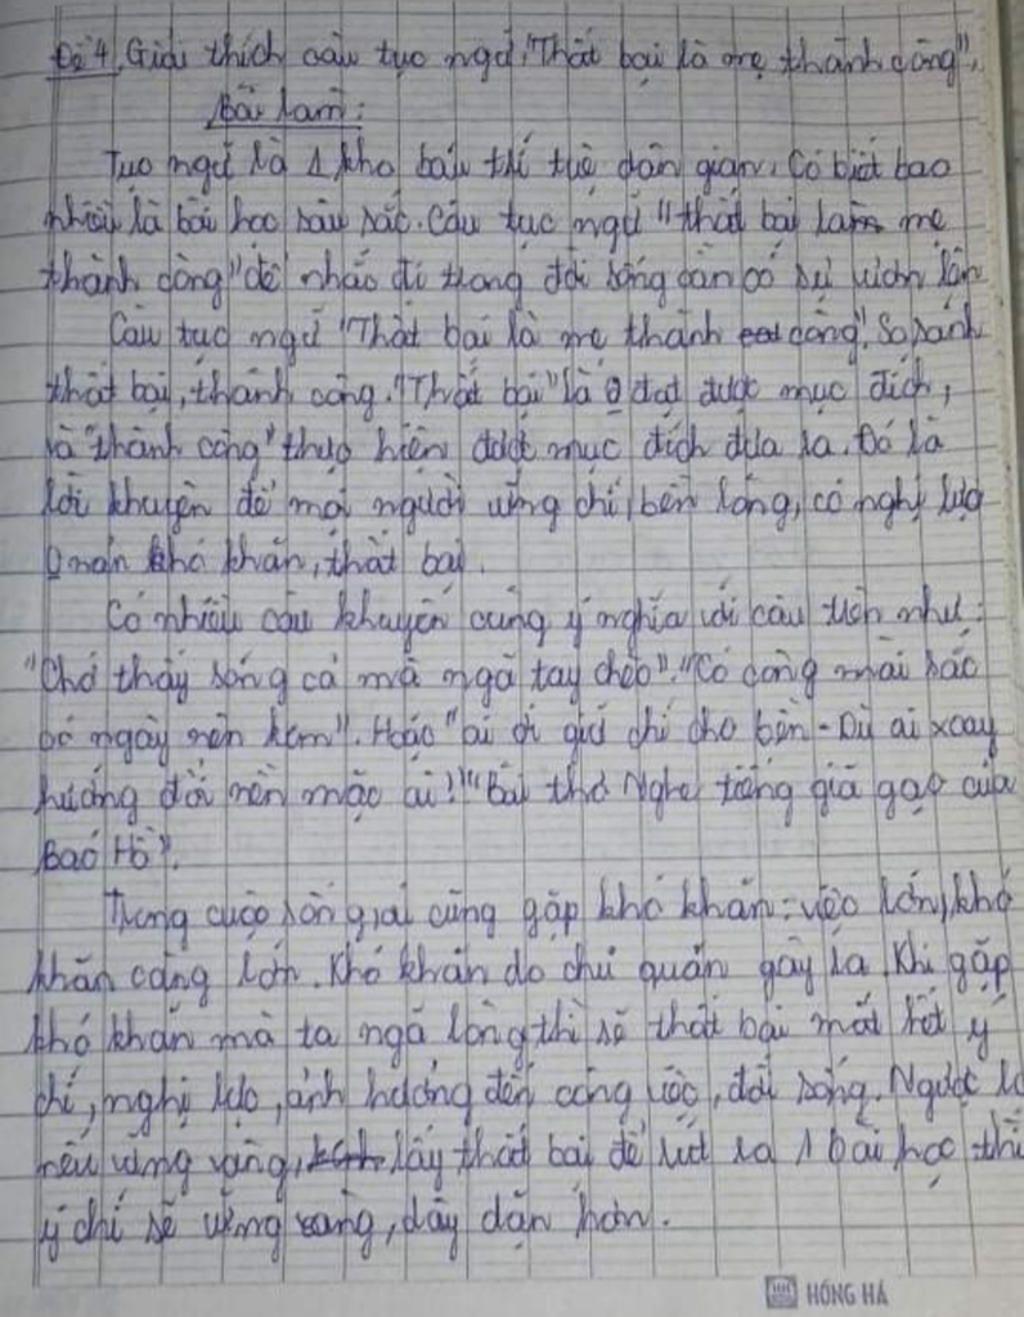 Đề 4, Giải thích câu tục ngữ "Thất bại là mẹ thành công",
Bài làm:
Tục ngữ là 1 kho báu trí tuệ dân gian. Có biết bao
nhiêu là bài học sâu sắc. Câu tục ngữ "thất bại làm mẹ
thành công" để nhắc đi trong đời sống cần có sự vươn lên
Câu tục ngữ "Thất bại là mẹ thành công". So sánh
thất bại, thành công. "Thất bại" là 0 đạt được mục đích,
là "thành công" thực hiện được mục đích đưa ra. Đó là
lời khuyên để mọi người vững chí, bền lòng, có nghị lực
khó khăn, thất bại.
Có nhiều câu khuyên cùng ý nghĩa với câu trên như:
"Chớ thấy sóng cả mà ngã tay chèo". "Có công mài sắc
có ngày nên kim". Hoặc "ai ơi giữ chí cho bền - Dù ai xoay
hướng đổi nền mặc ai!" "Bài thơ Nghe tiếng giã gạo của
Bác Hồ".
Trong cuộc sống ai cũng gặp khó khăn: việc lớn, khó
khăn càng lớn. Khó khăn do chủ quan gây ra. Khi gặp
khó khăn mà ta ngã lòng thì sẽ thất bại mất hết ý
chí, nghị lực, ảnh hưởng đến công việc, đời sống. Ngược lạ
nếu vững vàng, lấy thất bại để rút ra 1 bài học thì
ý chí sẽ vững vàng, dày dặn hơn.
HỒNG HÀ